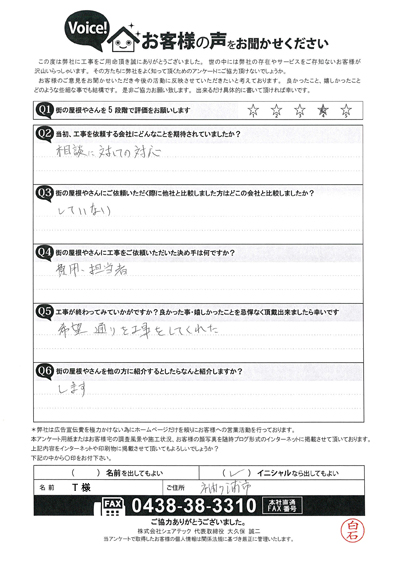 Voice!
お客様の声をお聞かせください
この度は弊社に工事をご用命頂き誠にありがとうございました。 世の中には弊社の存在やサービスをご存知ないお客様が
沢山いらっしゃいます。 その方たちに弊社をよく知って頂くためのアンケートにご協力頂けないでしょうか。
お客様のご意見をお聞かせいただき今後の活動に反映させていただきたいと考えております。 良かったこと、嬉しかったこと
どのような些細な事でも結構です。 是非ご協力お願い致します。 出来るだけ具体的に書いて頂ければ幸いです。
Q1 街の屋根やさんを5段階で評価をお願いします ☆ ☆ ☆ ★ ☆
Q2 当初、工事を依頼する会社にどんなことを期待されていましたか?
相談に対しての対応
Q3 街の屋根やさんにご依頼いただく際に他社と比較しました方はどこの会社と比較しましたか?
していない
Q4 街の屋根やさんに工事をご依頼いただいた決め手は何ですか?
費用、担当者
Q5 工事が終わってみていかがですか?良かった事・嬉しかったことを忌憚なく頂戴出来ましたら幸いです
希望通りを工事をしてくれた
Q6 街の屋根やさんを他の方に紹介するとしたらなんと紹介しますか?
します
*弊社は広告宣伝費を極力かけない為にホームページだけを頼りにお客様への営業活動を行っております。
本アンケート用紙またはお客様宅の調査風景や施工状況、お客様の顔写真を随時ブログ形式のインターネットに掲載させて頂いております。
上記内容をインターネットや印刷物に掲載させて頂いてもよろしいでしょうか?
下記の中から〇印をお付下さい。
( ) 名前を出してもよい
(✓) イニシャルなら出してもよい
名前 T様 ご住所 袖ケ浦市
FAX 0438-38-3310 本社直通 FAX番号
ご協力ありがとうございました。
株式会社シェアテック 代表取締役 大久保 誠二
当アンケートで取得したお客様の個人情報は関係法規に基づき厳正に管理いたします。
白石